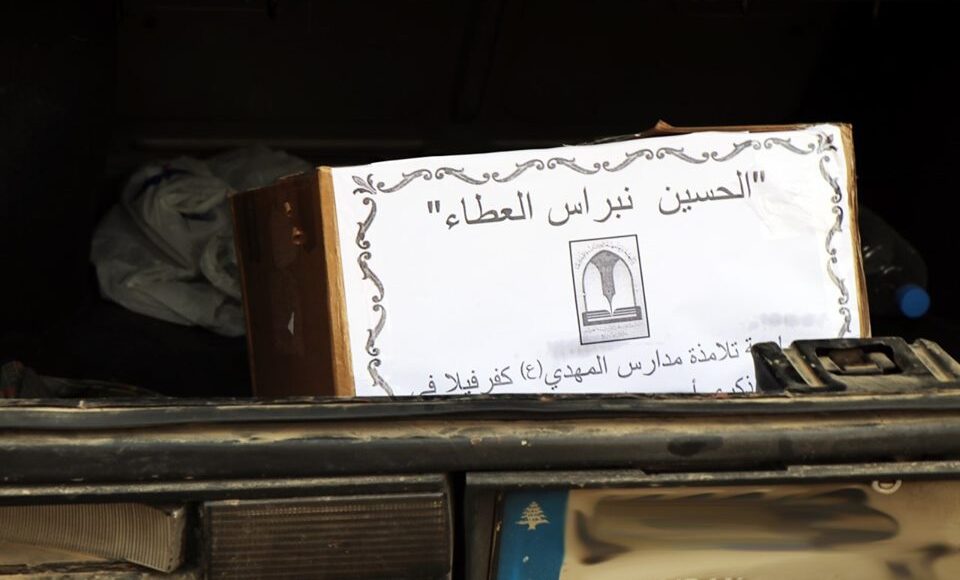 "الحسين نبراس العطاء"
تلامذة مدارس المهدي(ع) كفرفيلا في
ذكرى